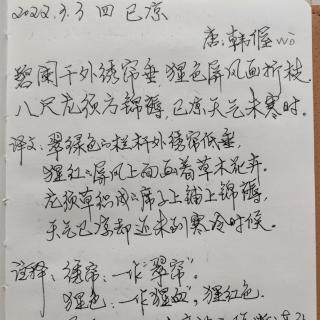 2022.3.3 四 已凉
唐:韩偓 wò
碧阑干外绣帘垂,猩色屏风画折枝。
八尺龙须方锦褥,已凉天气未寒时。
译文:翠绿色的栏杆外绣帘低垂,
猩红的屏风上面画着草木花卉。
龙须草织成的席子上铺上锦褥,
天气已凉却还未到寒冷时候。
注释:绣帘:一作"翠帘"。
猩色:一作"猩血",猩红色.